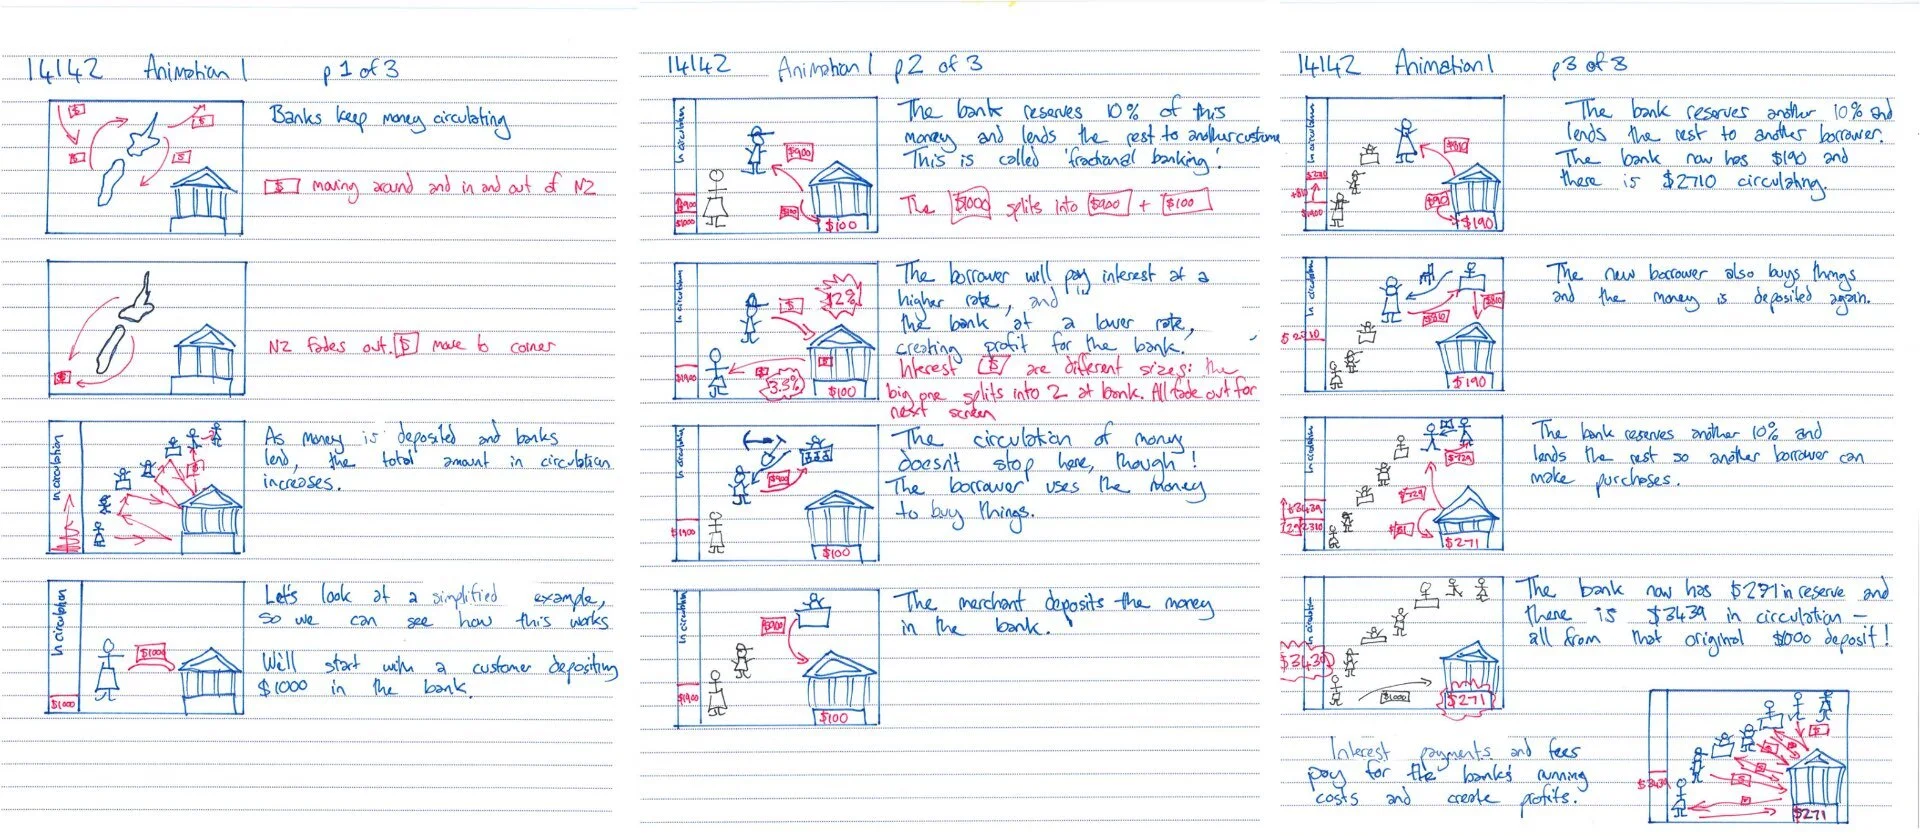 14142 Animation 1 p 1 of 3
$
$
$
$
Banks keep money circulating
$ moving around and in and out of NZ
$
NZ fades out. $ move to corner
In circulation
$
As money is deposited and banks
lend, the total amount in circulation
increases.
In circulation
$1000
$1000
Let's look at a simplified example,
so we can see how this works
We'll start with a customer depositing
$1000 in the bank.
14142 Animation 1 p2 of 3
In circulation
$900
$1000
$900
$100
$100
The bank reserves 10% of this
money and lends the rest to another custome
This is called 'fractional banking'.
The $1000 splits into $900 + $100
In circulation
$1900
$
12%
$
$
3.5%
$100
The borrower will pay interest at a
higher rate, and
the bank at a lower rate,
creating profit for the bank.
Interest $ are different sizes: the
big one splits into 2 at bank. All fade out for
next screen
In circulation
$1900
$900
$100
The circulation of money
doesn't stop here, though!
The borrower uses the money
to buy things.
In circulation
$1900
$900
$100
The merchant deposits the money
in the bank.
14142 Animation 1 p3 of 3
In circulation
+810
$1900
$810
$90
$190
The bank reserves another 10% and
lends the rest to another borrower.
The bank now has $190 and
there is $2710 circulating.
In circulation
$810
$810
$190
The new borrower also buys things
and the money is deposited again.
In circulation
$3439
$729
$729
$81
$271
The bank reserves another 10% and
lends the rest so another borrower can
make purchases.
In circulation
$3439
$1000
$271
The bank now has $271 in reserve and
there is $3439 in circulation –
all from that original $1000 deposit!
Interest payments and fees
pay for the bank's running
costs and create profits.
$3439
$
$
$271